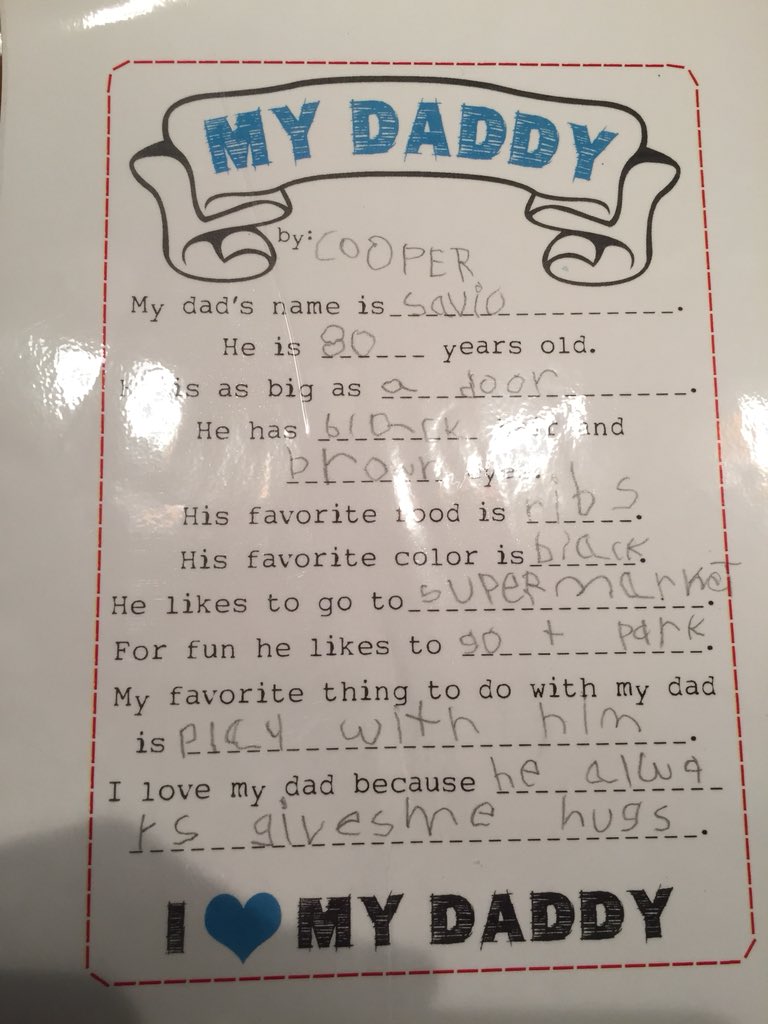 MY DADDY
by: COOPER
My dad's name is savio.
He is 80 years old.
is as big as a door.
He has black and
brown
His favorite food is ribs.
His favorite color is black.
He likes to go to supermarket.
For fun he likes to go t park.
My favorite thing to do with my dad
is play with him.
I love my dad because he alwa
ys givesme hugs.
I MY DADDY